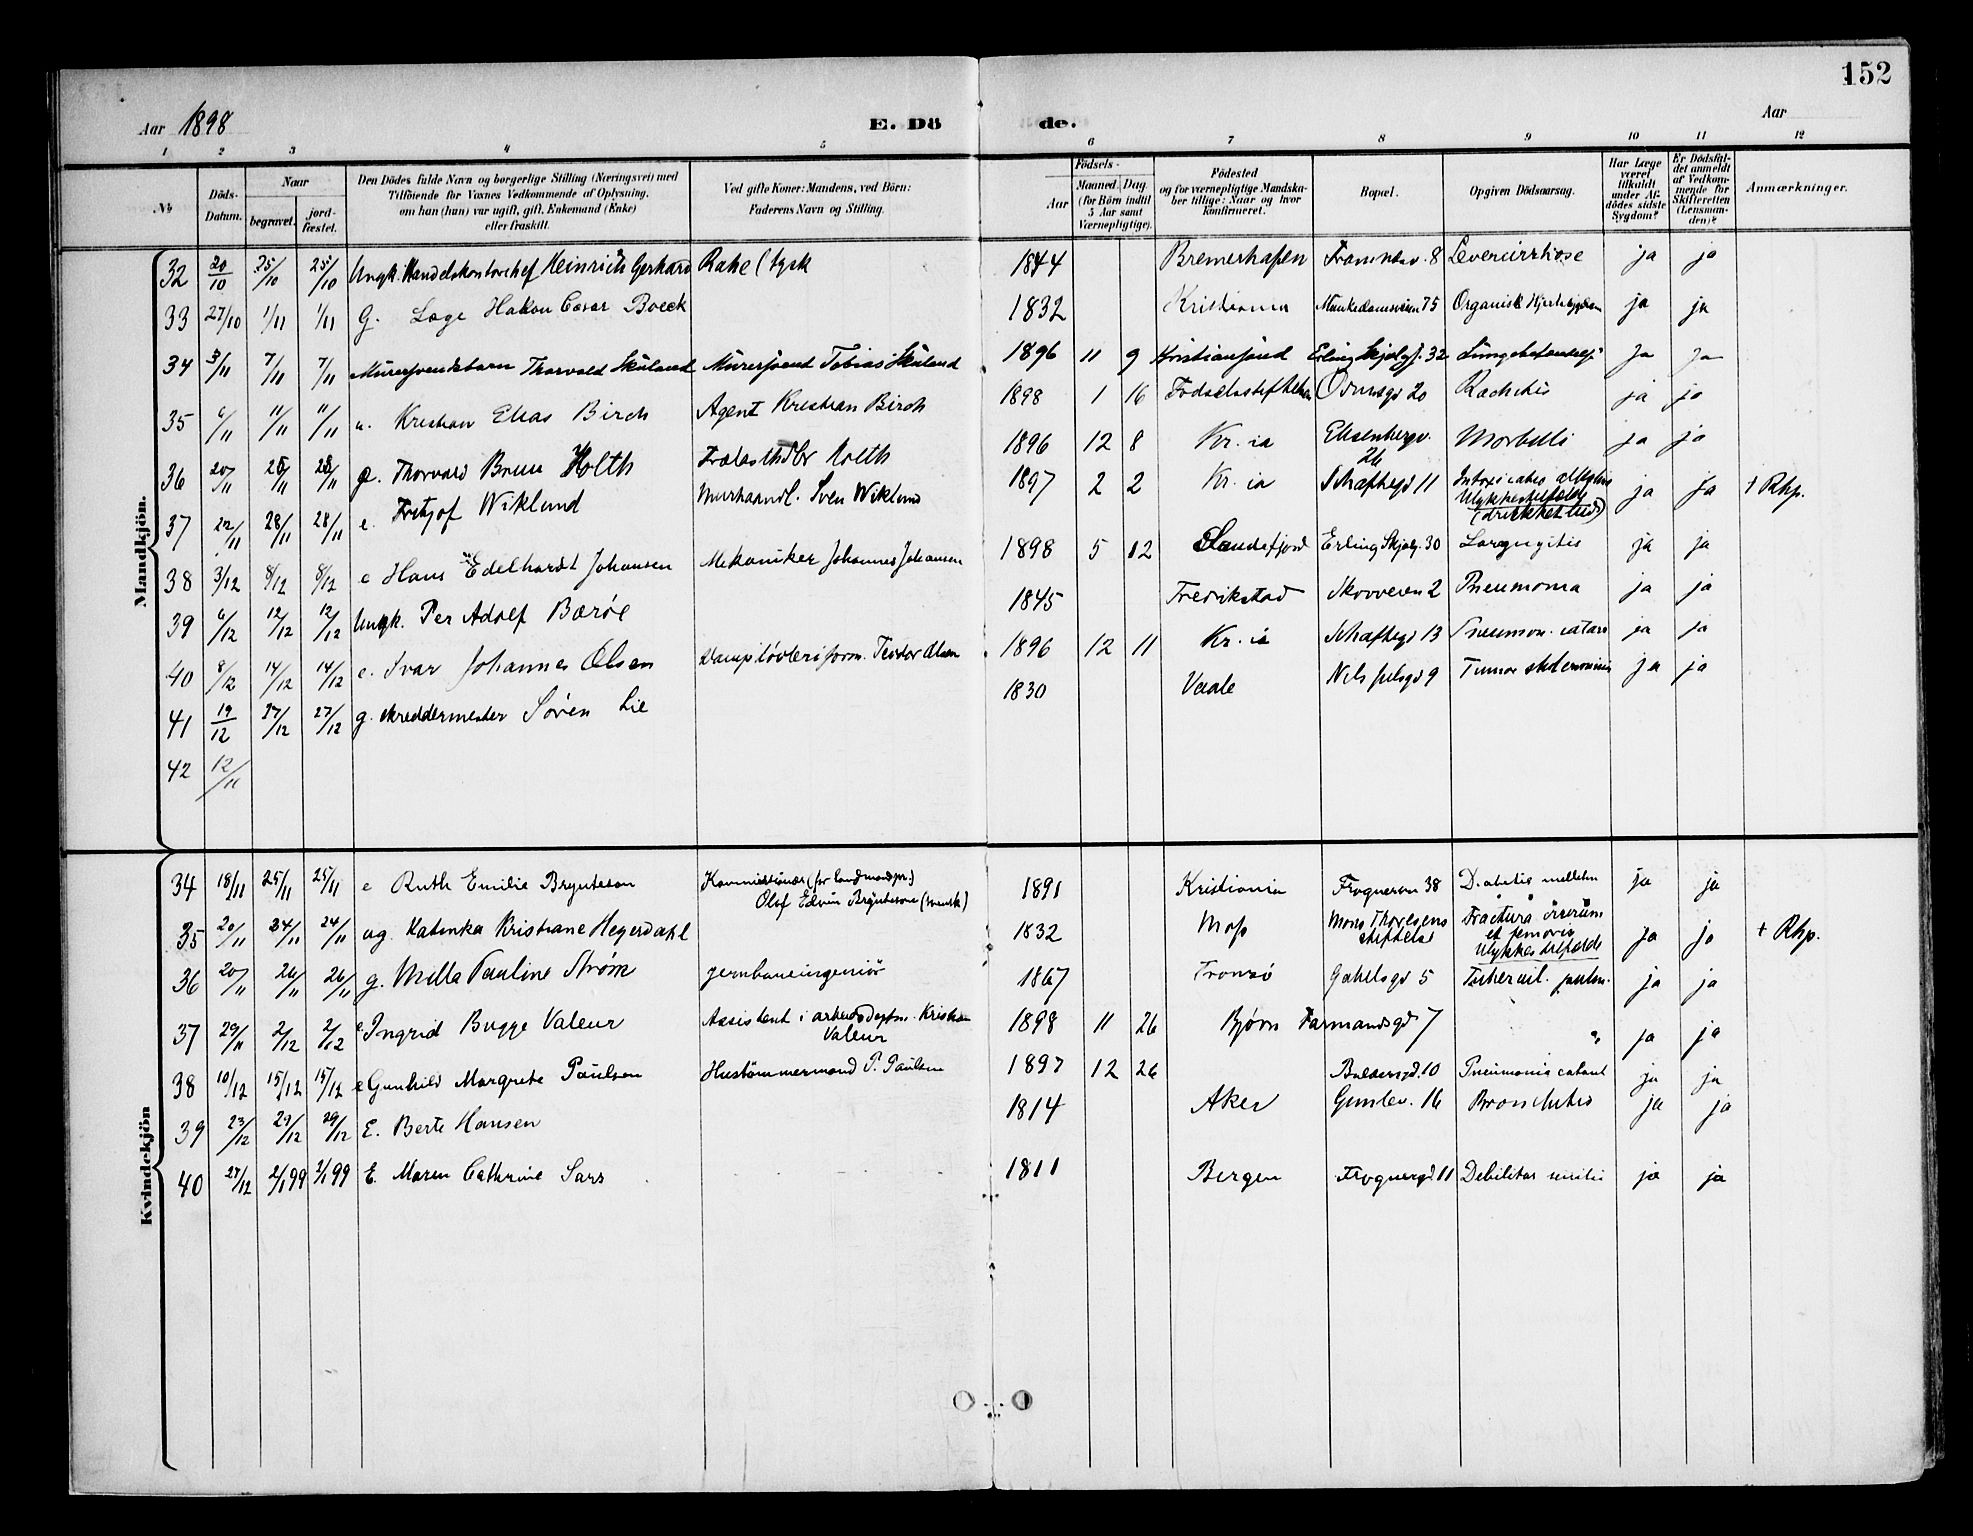 152
Aar 1898 E. Dö de. Aar
1 2 3 4 5 6 7 8 9 10 11 12
№ Döds-Datum. Naar begravet. jordfæstet. Den Dödes fulde Navn og borgerlige Stilling (Næringsvei) med Tilföiende for Voxnes Vedkommende af Oplysning, om han (hun) var ugift, gift, Enkemand (Enke) eller fraskilt. Ved gifte Koner: Mandens, ved Börn: Faderens Navn og Stilling. Födsels- Aar Maaned. Dag (for Börn indtil 5 Aar samt Værnepligtige). Födested og for værnepligtige Mandskaber tillige: Naar og hvor konfirmeret. Bopæl. Opgiven Dödsaarsag. Har Læge været tilkaldt under Afdödes sidste Sygdom? Er Dödsfaldet anmeldt af Vedkommende for Skifteretten (Lensmanden)? Anmærkninger.
Mandkjön.
32 20/10 25/10 25/10 Ungk. Handelskontorchef Heinrich Gerhard Rake (tysk 1844 Bremerhafen 8 Levercirrhose ja ja
33 27/10 1/11 1/11 G. Læge Hakon Cæsar Boeck 1832 Kristiania Munkedamsveien 75 Organisk Hjertesygdom ja ja
34 3/11 7/11 7/11 Murersvendsbarn Thorvald Skuland Murersvend Tobias Skuland 1896 11 9 Kristianssund Erling Skjalgs. 32 Lungebetændelse ja ja
35 6/11 11/11 11/11 u. Kristian Elias Birch Agent Kristian Birch 1898 1 16 Fødselsstiftelsen Odinsgd 20 Rachitis ja ja
36 20/11 25/11 25/11 e. Thorvard Bruun Holth Holth 1896 12 8 Kr.ia Elisenbergv. 26 Morbilli ja ja
37 22/11 28/11 28/11 e. Fritjof Wiklund Murhaandl. Sven Wiklund 1897 2 2 Kr.ia Schæftegd 11 Ulykkestilfælde (drukket lud) ja ja † Rhp.
38 3/12 8/12 8/12 e Hans Edelhardt Johansen Mekaniker Johannes Johansen 1898 5 12 Sandefjord Erling Skjalgs. 30 Laryngitis ja ja
39 6/12 12/12 12/12 Ungk. Per Adolf Bærøe 1845 Fredrikstad Skovveien 2 Pneumonia ja ja
40 8/12 14/12 14/12 e. Ivar Johannes Olsen Teodor Olsen 1896 12 11 Kr.ia Schæftegd 13 Pneumon. catarr ja ja
41 19/12 27/12 27/12 g. skreddermester Søren Lie 1830 Vaale Nils Juelsgd 9 Tumor abdominis ja ja
42 12/11
Kvindekjön
34 18/11 25/11 25/11 e Ruth Emilie Brynteson Kommissionær (før landmand pr.) 1891 Kristiania Frognerv 38 Diabetis melleten ja ja
Olof Edvin Brynteson (svensk)
35 20/11 24/11 24/11 ug. Katinka Kristiane Heyerdahl 1832 Moss Mons Thorsens stiftelse Fractura
et femoris
Ulykkestilfælde ja ja † Rhp.
36 20/11 26/11 26/11 g. Milla Pauline Strøm jernbaneingeniør 1867 Tromsø Gabelsgd 5 Tubercul. pulm. ja ja
37 29/11 2/12 2/12 e Ingrid Bugge Valeur Assistent i arbeidsdeptm. Kristian Valeur 1898 11 26 Bjørn Farmandsgd 7 " ja ja
38 10/12 15/12 15/12 e Gunhild Margrete Paulsen Hustømmermand P. Paulsen 1897 12 26 Baldersgd. 10 Pneumonia catarrh ja ja
39 23/12 29/12 29/12 E. Berte Hansen 1814 Aker Gimlev. 16 Bronchitis ja ja
40 27/12 2/1 99 2/1 99 E. Maren Cathrine Sars 1811 Bergen Frognergd 11 Debilitas senilis ja ja